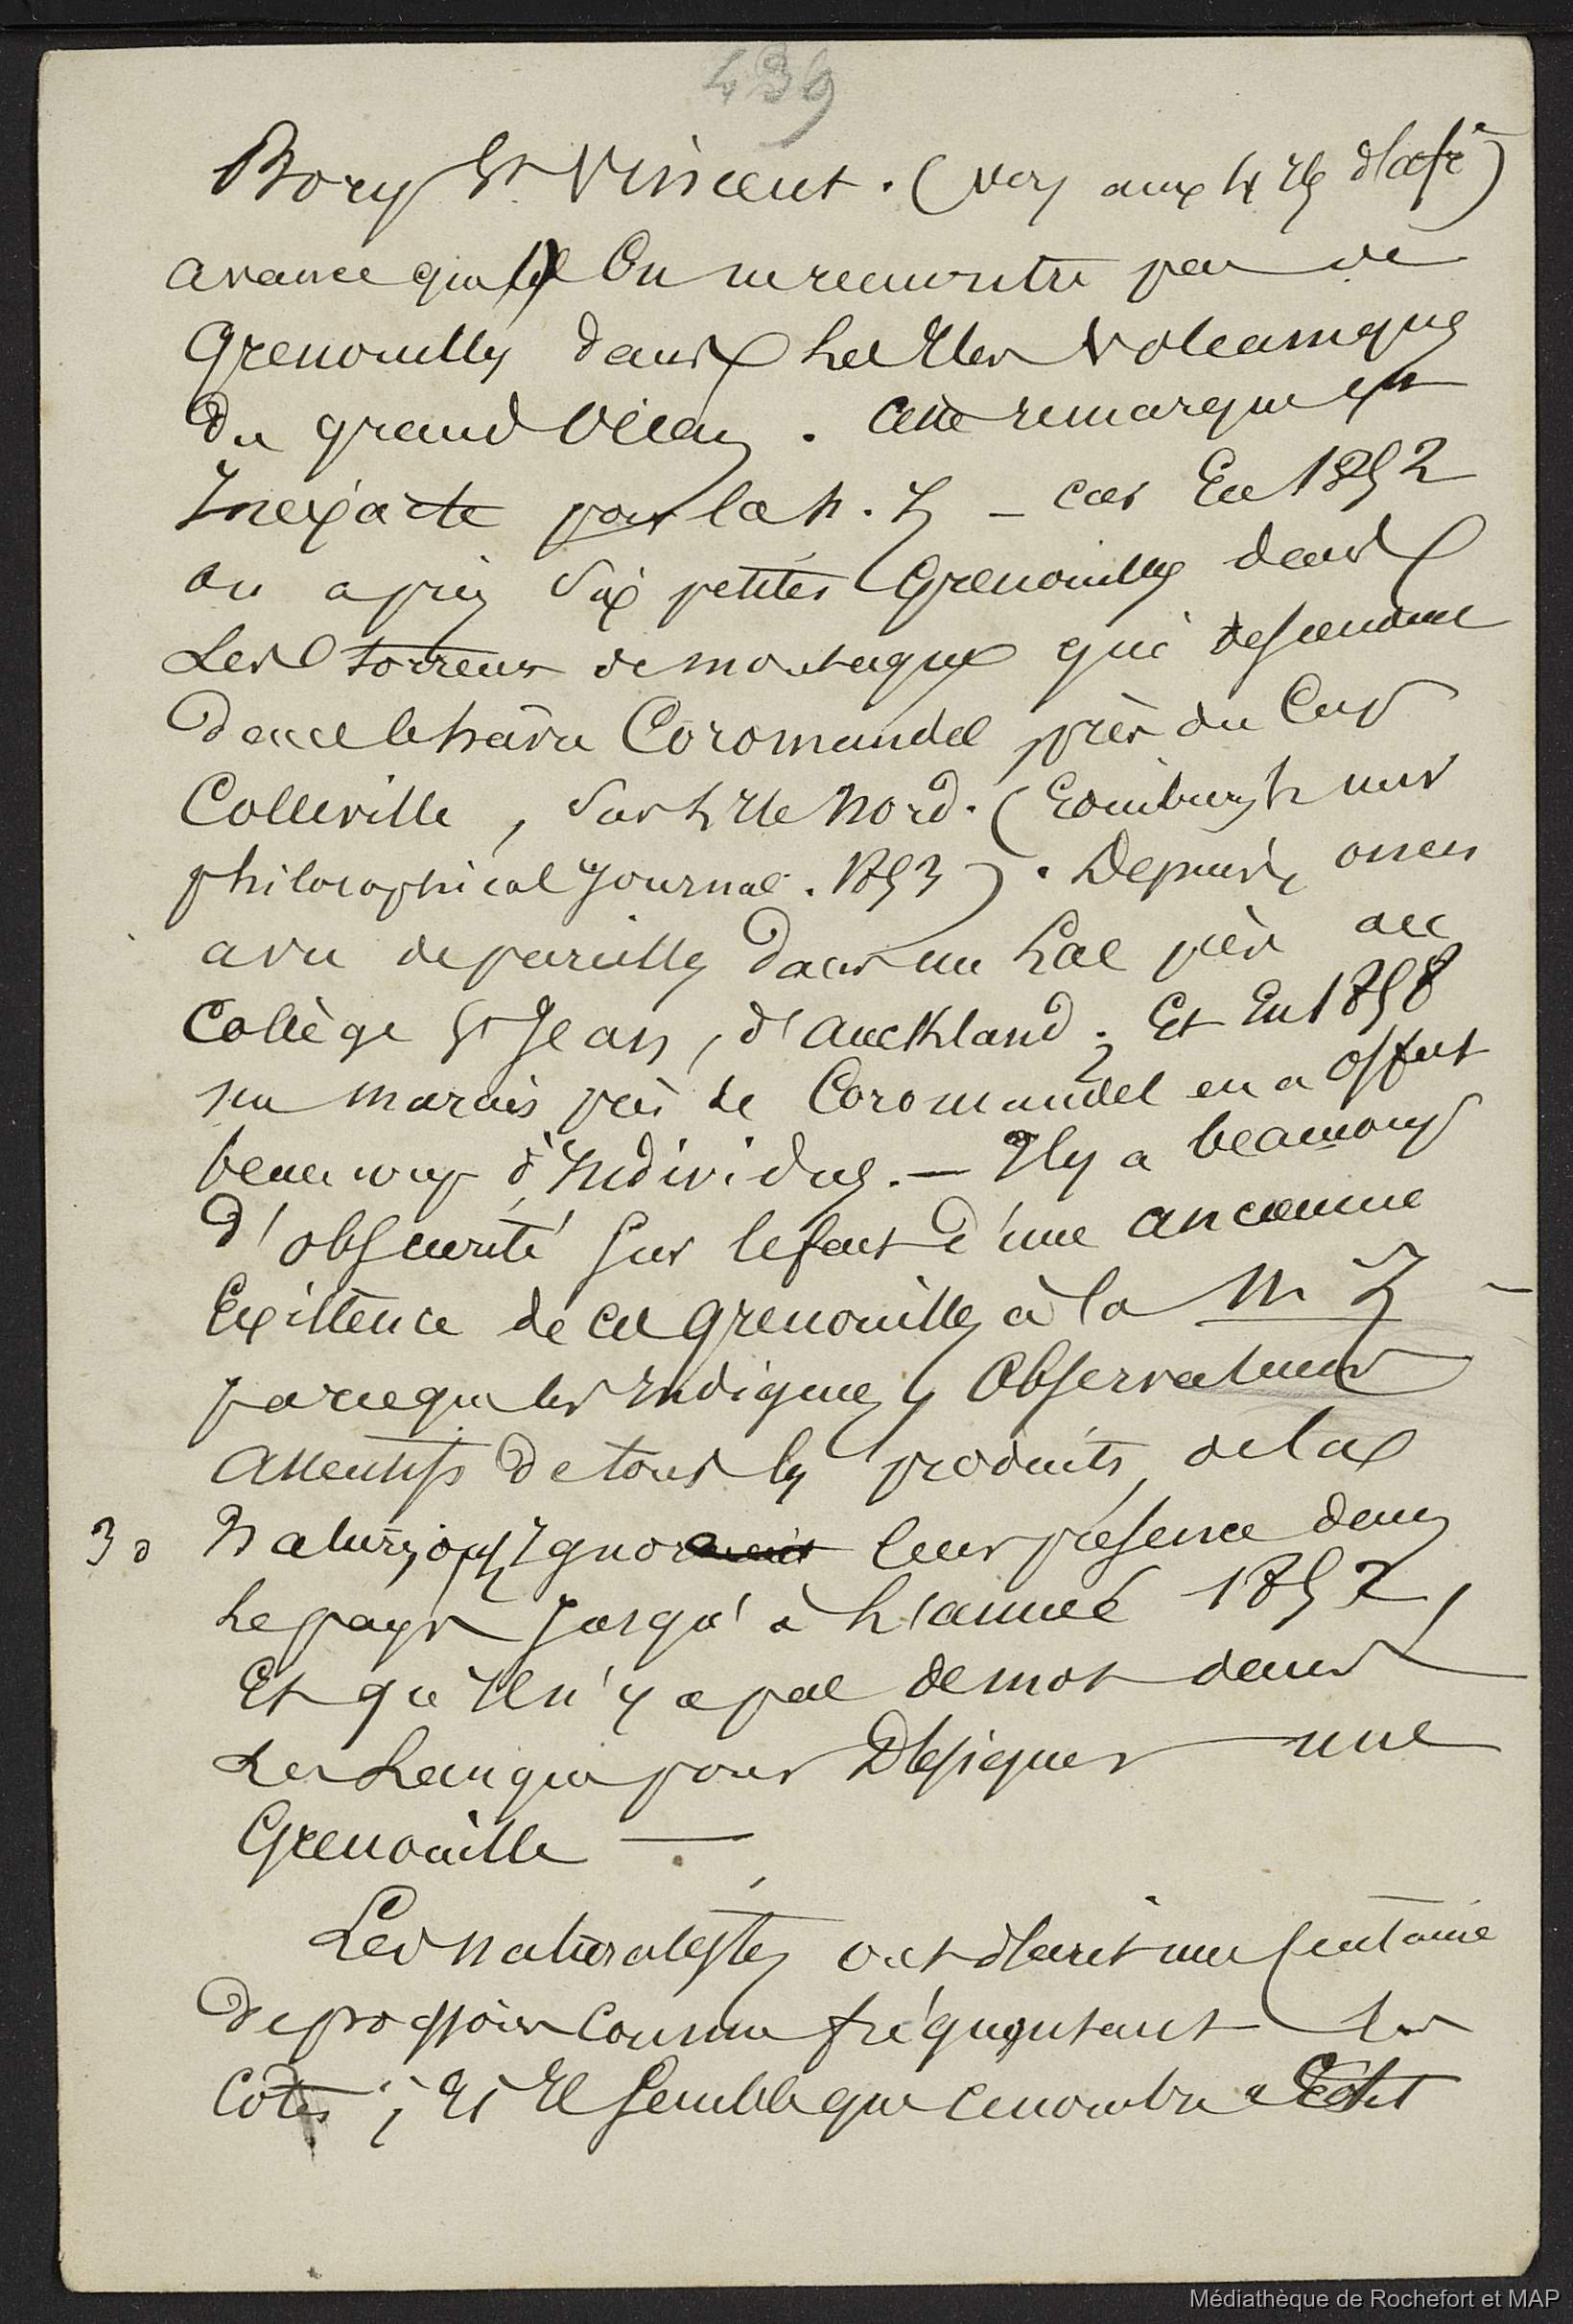 439
Bory St Vincent . (Voy aux 4 Iles d'afr.)
avance que On ne rencontre pas de
Grenouilles dans Les Iles Volcaniques
du grand Océan . Cette remarque est
Inexacte pour la n. Z – car En 1852
on a pris Six petites Grenouilles dans
Les torrens de montagnes qui descendent
dans le hâvre Coromandel près du Cap
Colleville , Sur L'Ile Nord. (Edinburgh new
philosophical Journal . 1853) . Depuis, on en
a vu de pareilles Dans un Lac près du
Collège St Jean, d'auckland ; Et En 1858
un marais près de Coromandel en a offert
beaucoup d'Individus. – Il y a beaucoup
d'obscurité Sur le fait d'une ancienne
Existence de ces grenouilles à la N Z –
parceque les Indigènes, Observateurs
Attentifs De tous les produits de la
3o Nature, ont Ignoré leur présence dans
Le pays Jusqu'à L'année 1852,
Et qu'Il n'y a pas de mot dans
Les Langues pour Désigner une
Grenouille —.
Les naturalistes ont décrit une Centaine
de poissons Comme fréquentant les
Côtes ; Et Il Semble que ce nombre